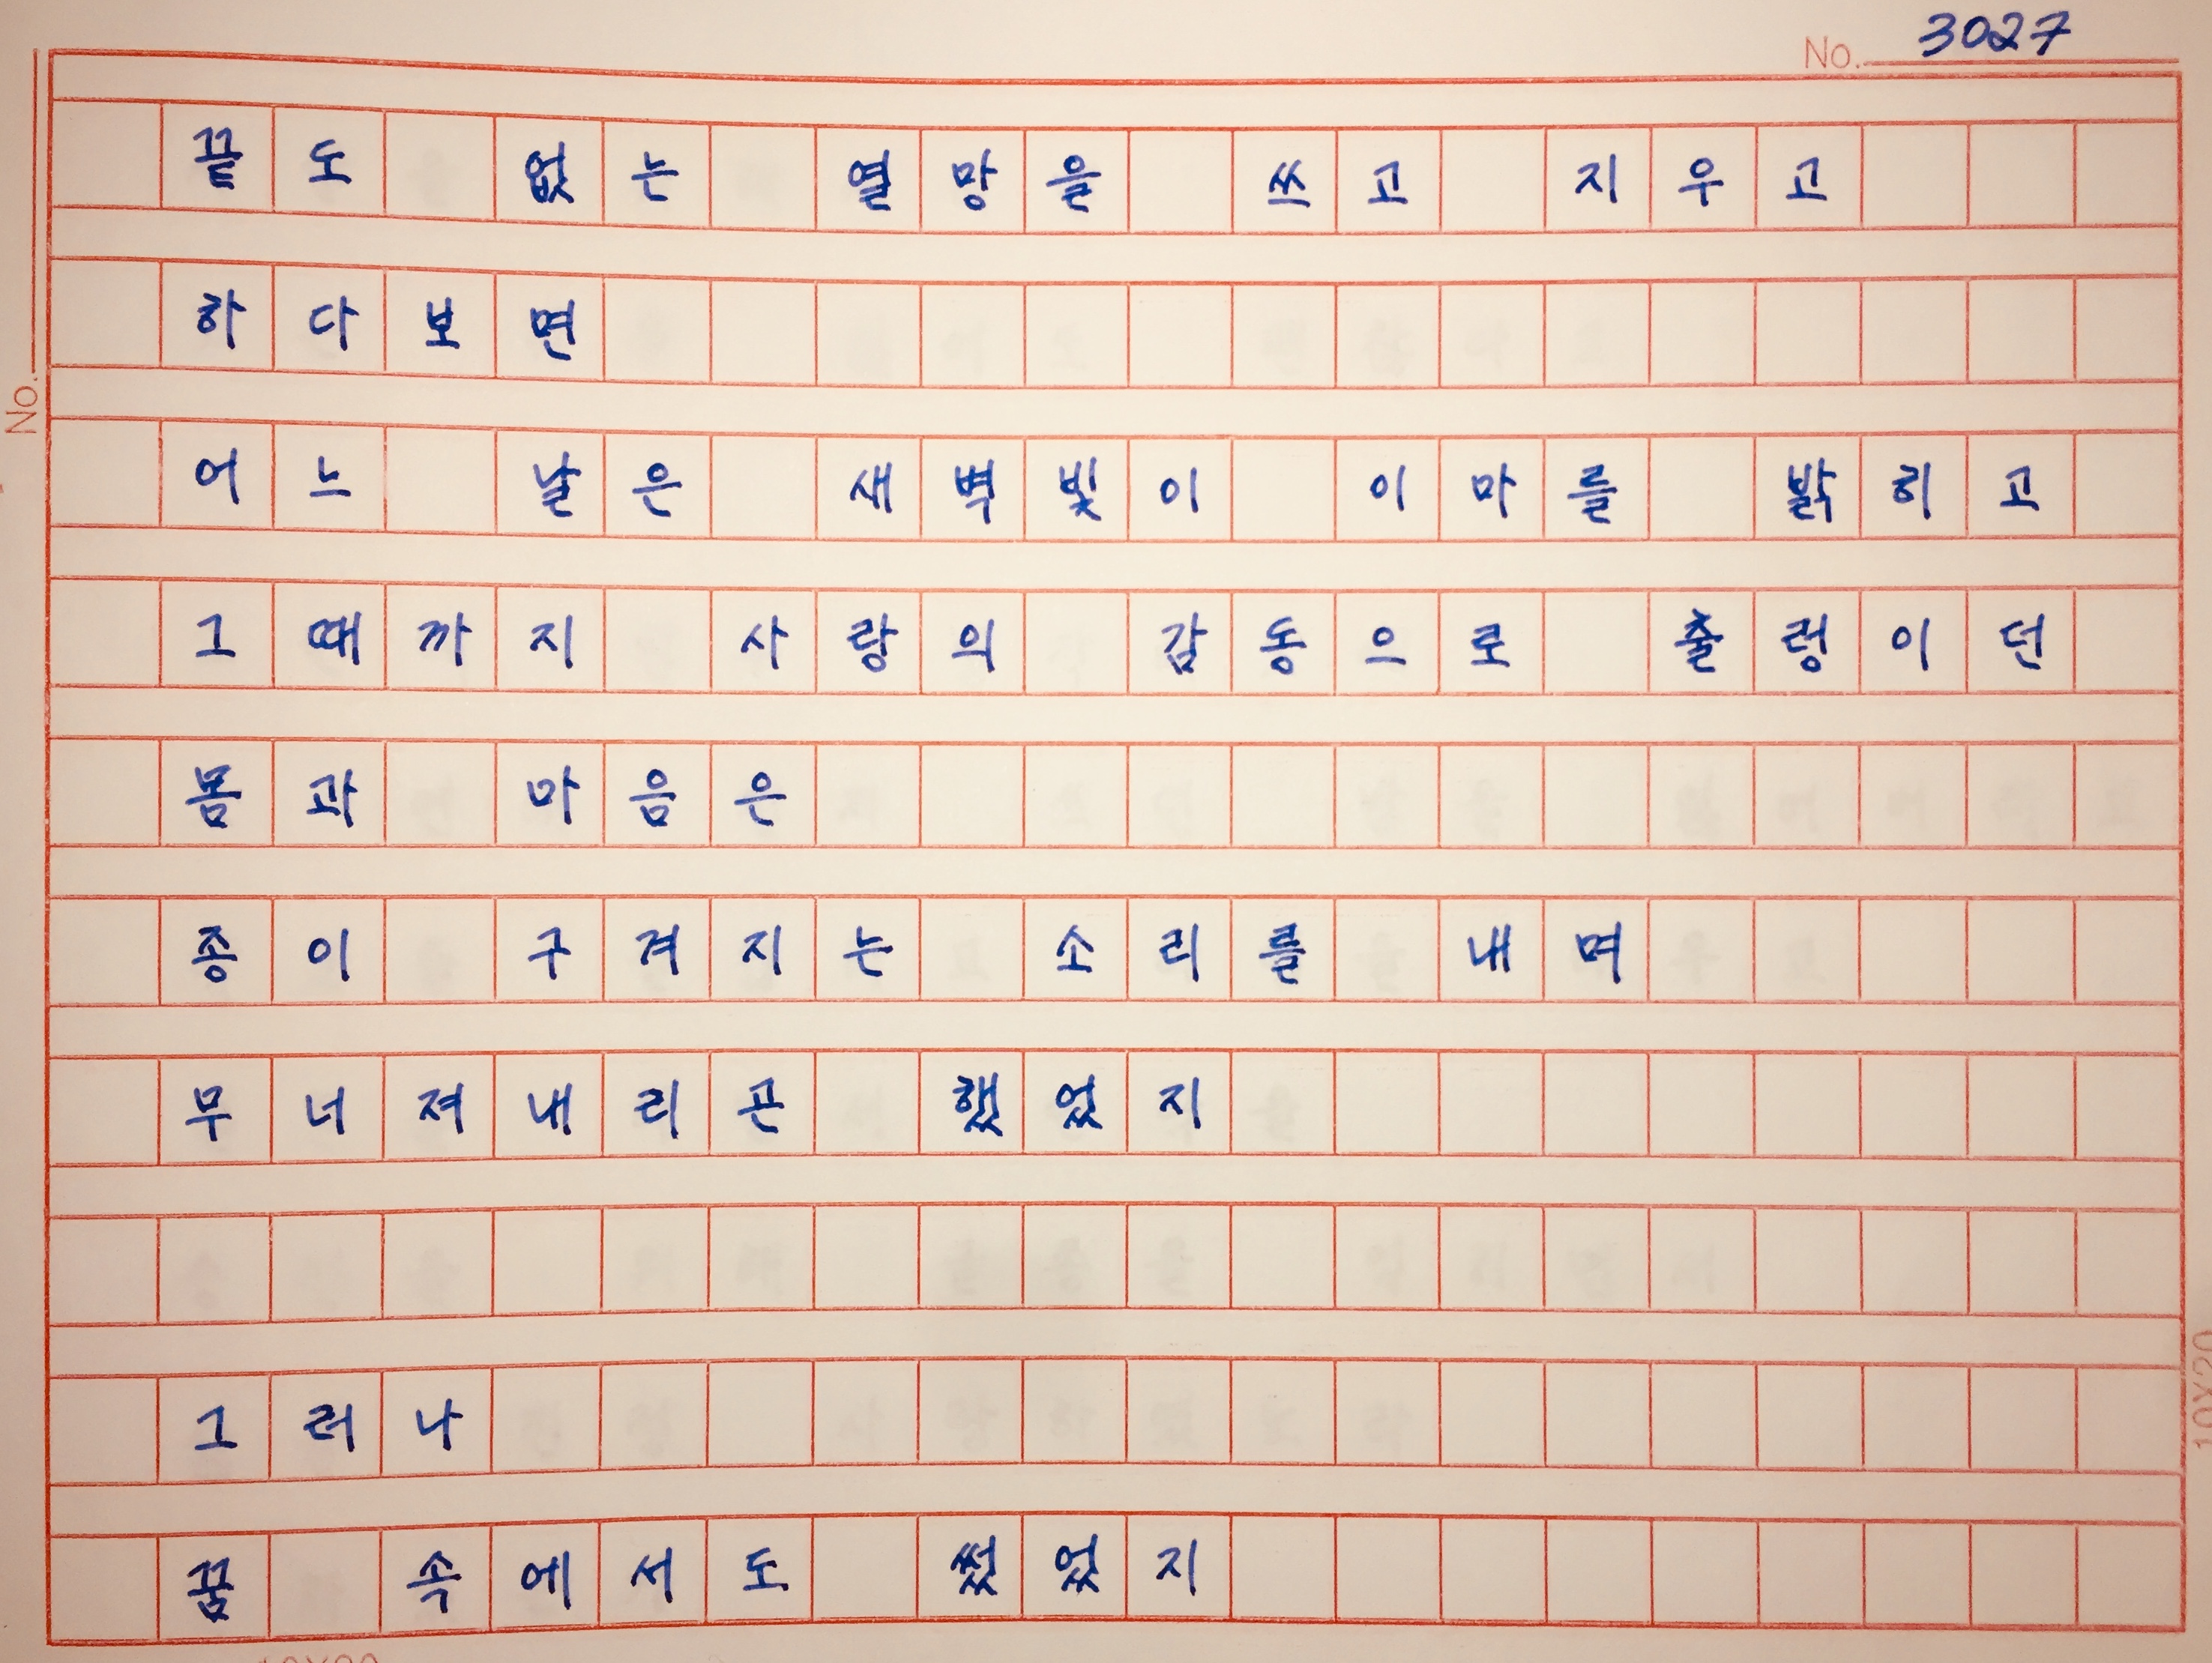 No. 3027
끝도 없는 열망을 쓰고 지우고
하다보면
어느 날은 새벽빛이 이마를 밝히고
그때까지 사랑의 감동으로 출렁이던
몸과 마음은
종이 구겨지는 소리를 내며
무너져내리곤 했었지
그러나
꿈 속에서도 썼었지
No.
10X20